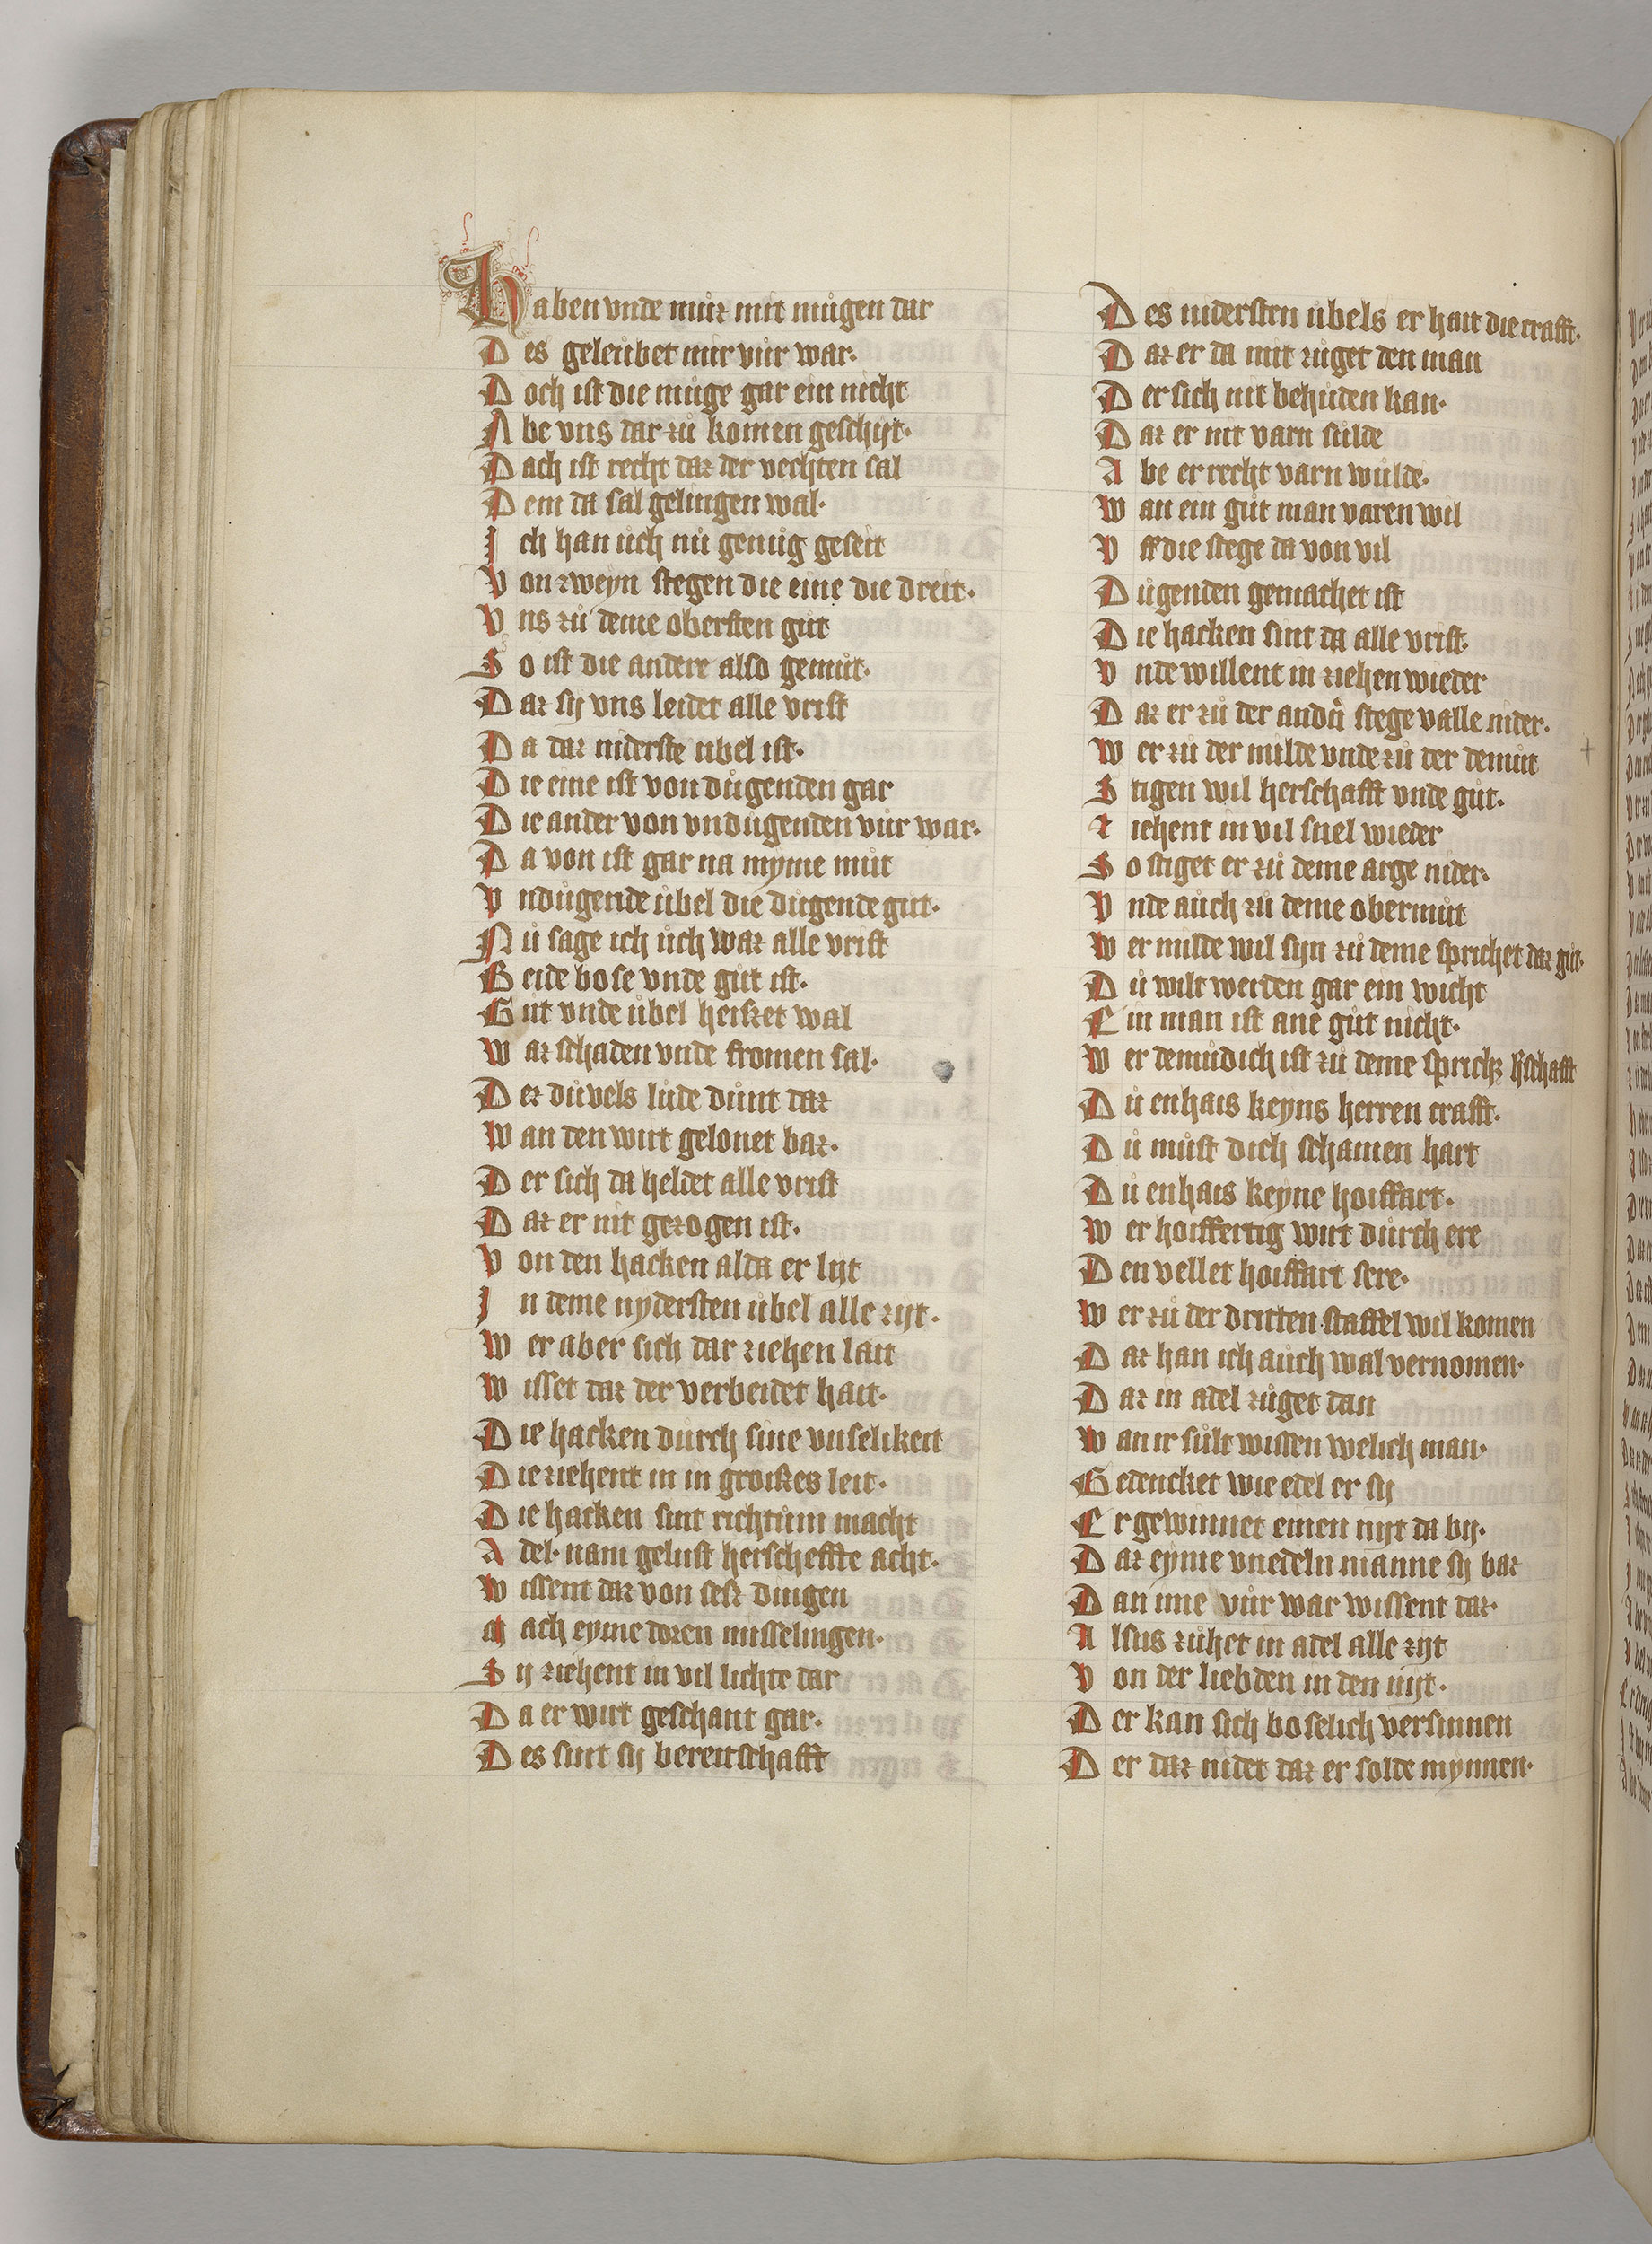 Haben vnde můz mit můgen dar
Des geleubet mir vůr war·
Doch ist die můge gar ein nicht
Abe vns dar zů komen geschijt·
Dach ist recht daz der vechten sal
Dem da sal gelingen wal·
Ich han ůch nů genůg geseit
Von zweyn stegen die eine die dreit·
Vns zů deme obersten gůt
So ist die andere also gemůt·
Daz sij vns leidet alle vrist
Da daz niderste ůbel ist·
Die eine ist von důgenden gar
Die ander von vndůgenden vůr war·
Da von ist gar na myme můt
Vndůgende ůbel die důgende gůt·
Nů sage ich ůch waz alle vrist
Beide bose vnde gůt ist·
Gůt vnde ůbel heiszet wal
Waz schaden vnde fromen sal·
Der důvels lůde důnt daz
Wan den wirt gelonet baz·
Der sich da heldet alle vrist
Daz er nit gezogen ist·
Von den hacken alda er lijt
In deme nydersten ůbel alle zijt·
Wer aber sich dar ziehen latt
Wisset daz der verbeidet hait·
Die hacken důrch sine vnselikeit
Die ziehent in in groiszes leit·
Die hacken sint richtům macht
Adel· nam gelust herscheffte acht·
Wissent daz von sesz dingen
Mach eyme doren misselingen·
Sij ziehent in vil lichte dar
Da er wirt geschant gar·
Des sint sij bereitschafft
Des nidersten ůbels er hait die crafft·
Daz er da mit zůget den man
Der sich nit behůden kan·
Daz er nit varn sůlde
Abe er recht varn wůlde·
Wan ein gůt man varen wil
Vff die stege da von vil
Důgenden gemachet ist
Die hacken sint da alle vrist·
Vnde willent in ziehen wieder
Daz er zů der andern stege valle nider·
Wer zů der milde vnde zů der demůt
Stigen wil herschafft vnde gůt·
Ziehent in vil snel wieder
So stiget er zů deme arge nider·
Vnde aůch zů deme obermůt
Wer milde wil sijn zů deme sprichet daz gůt·
Dů wilt werden gar ein wicht
Ein man ist ane gůt nicht·
Wer demůdich ist zů deme sprichz hschafft
Dů enhais keyns herren crafft·
Dů můst dich schamen hart
Dů enhais keyne hoiffart·
Wer hoiffertig wirt důrch ere
Den vellet hoiffart sere·
Wer zů der dritten staffel wil komen
Daz han ich aůch wal vernomen·
Daz in adel zůget dan
Wan ir sůlt wissen welich man·
Gedencket wie edel er sij
Er gewinnet einen nijt da bij·
Daz eyme vnedeln manne sij baz
Dan ime vůr war wissent daz·
Alsus zůhet in adel alle zijt
Von der liebden in den nijt·
Der kan sich boselich versinnen
Der daz nidet daz er solde mynnen·